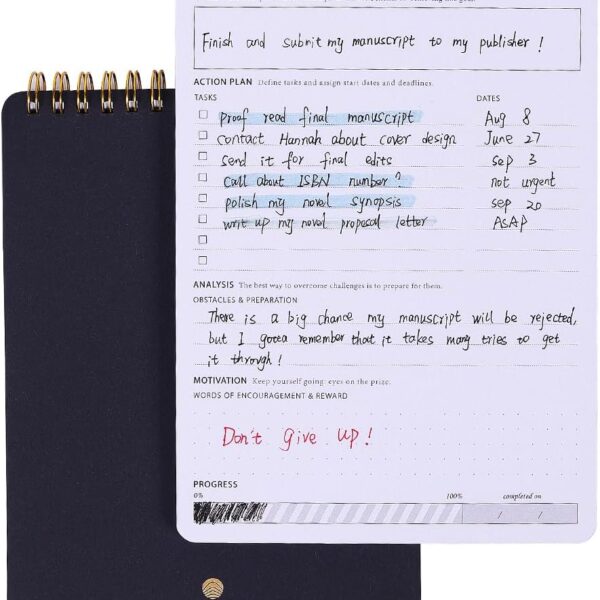 Finish and submit my manuscript to my publisher !
ACTION PLAN Define tasks and assign start dates and deadlines.
TASKS DATES
Proof read final manuscript Aug 8
contact Hannah about cover design June 27
send it for final edits sep 3
call about ISBN number? not urgent
polish my novel synopsis sep 20
writ up my novel proposal letter ASAP
ANALYSIS The best way to overcome challenges is to prepare for them.
OBSTACLES & PREPARATION
There is a big chance my manuscript will be rejected,
but I gotta remember that it takes many tries to get
it through!
MOTIVATION Keep yourself going: eyes on the prize.
WORDS OF ENCOURAGEMENT & REWARD
Don't Give Up!
PROGRESS
0% 100% completed on
/ /